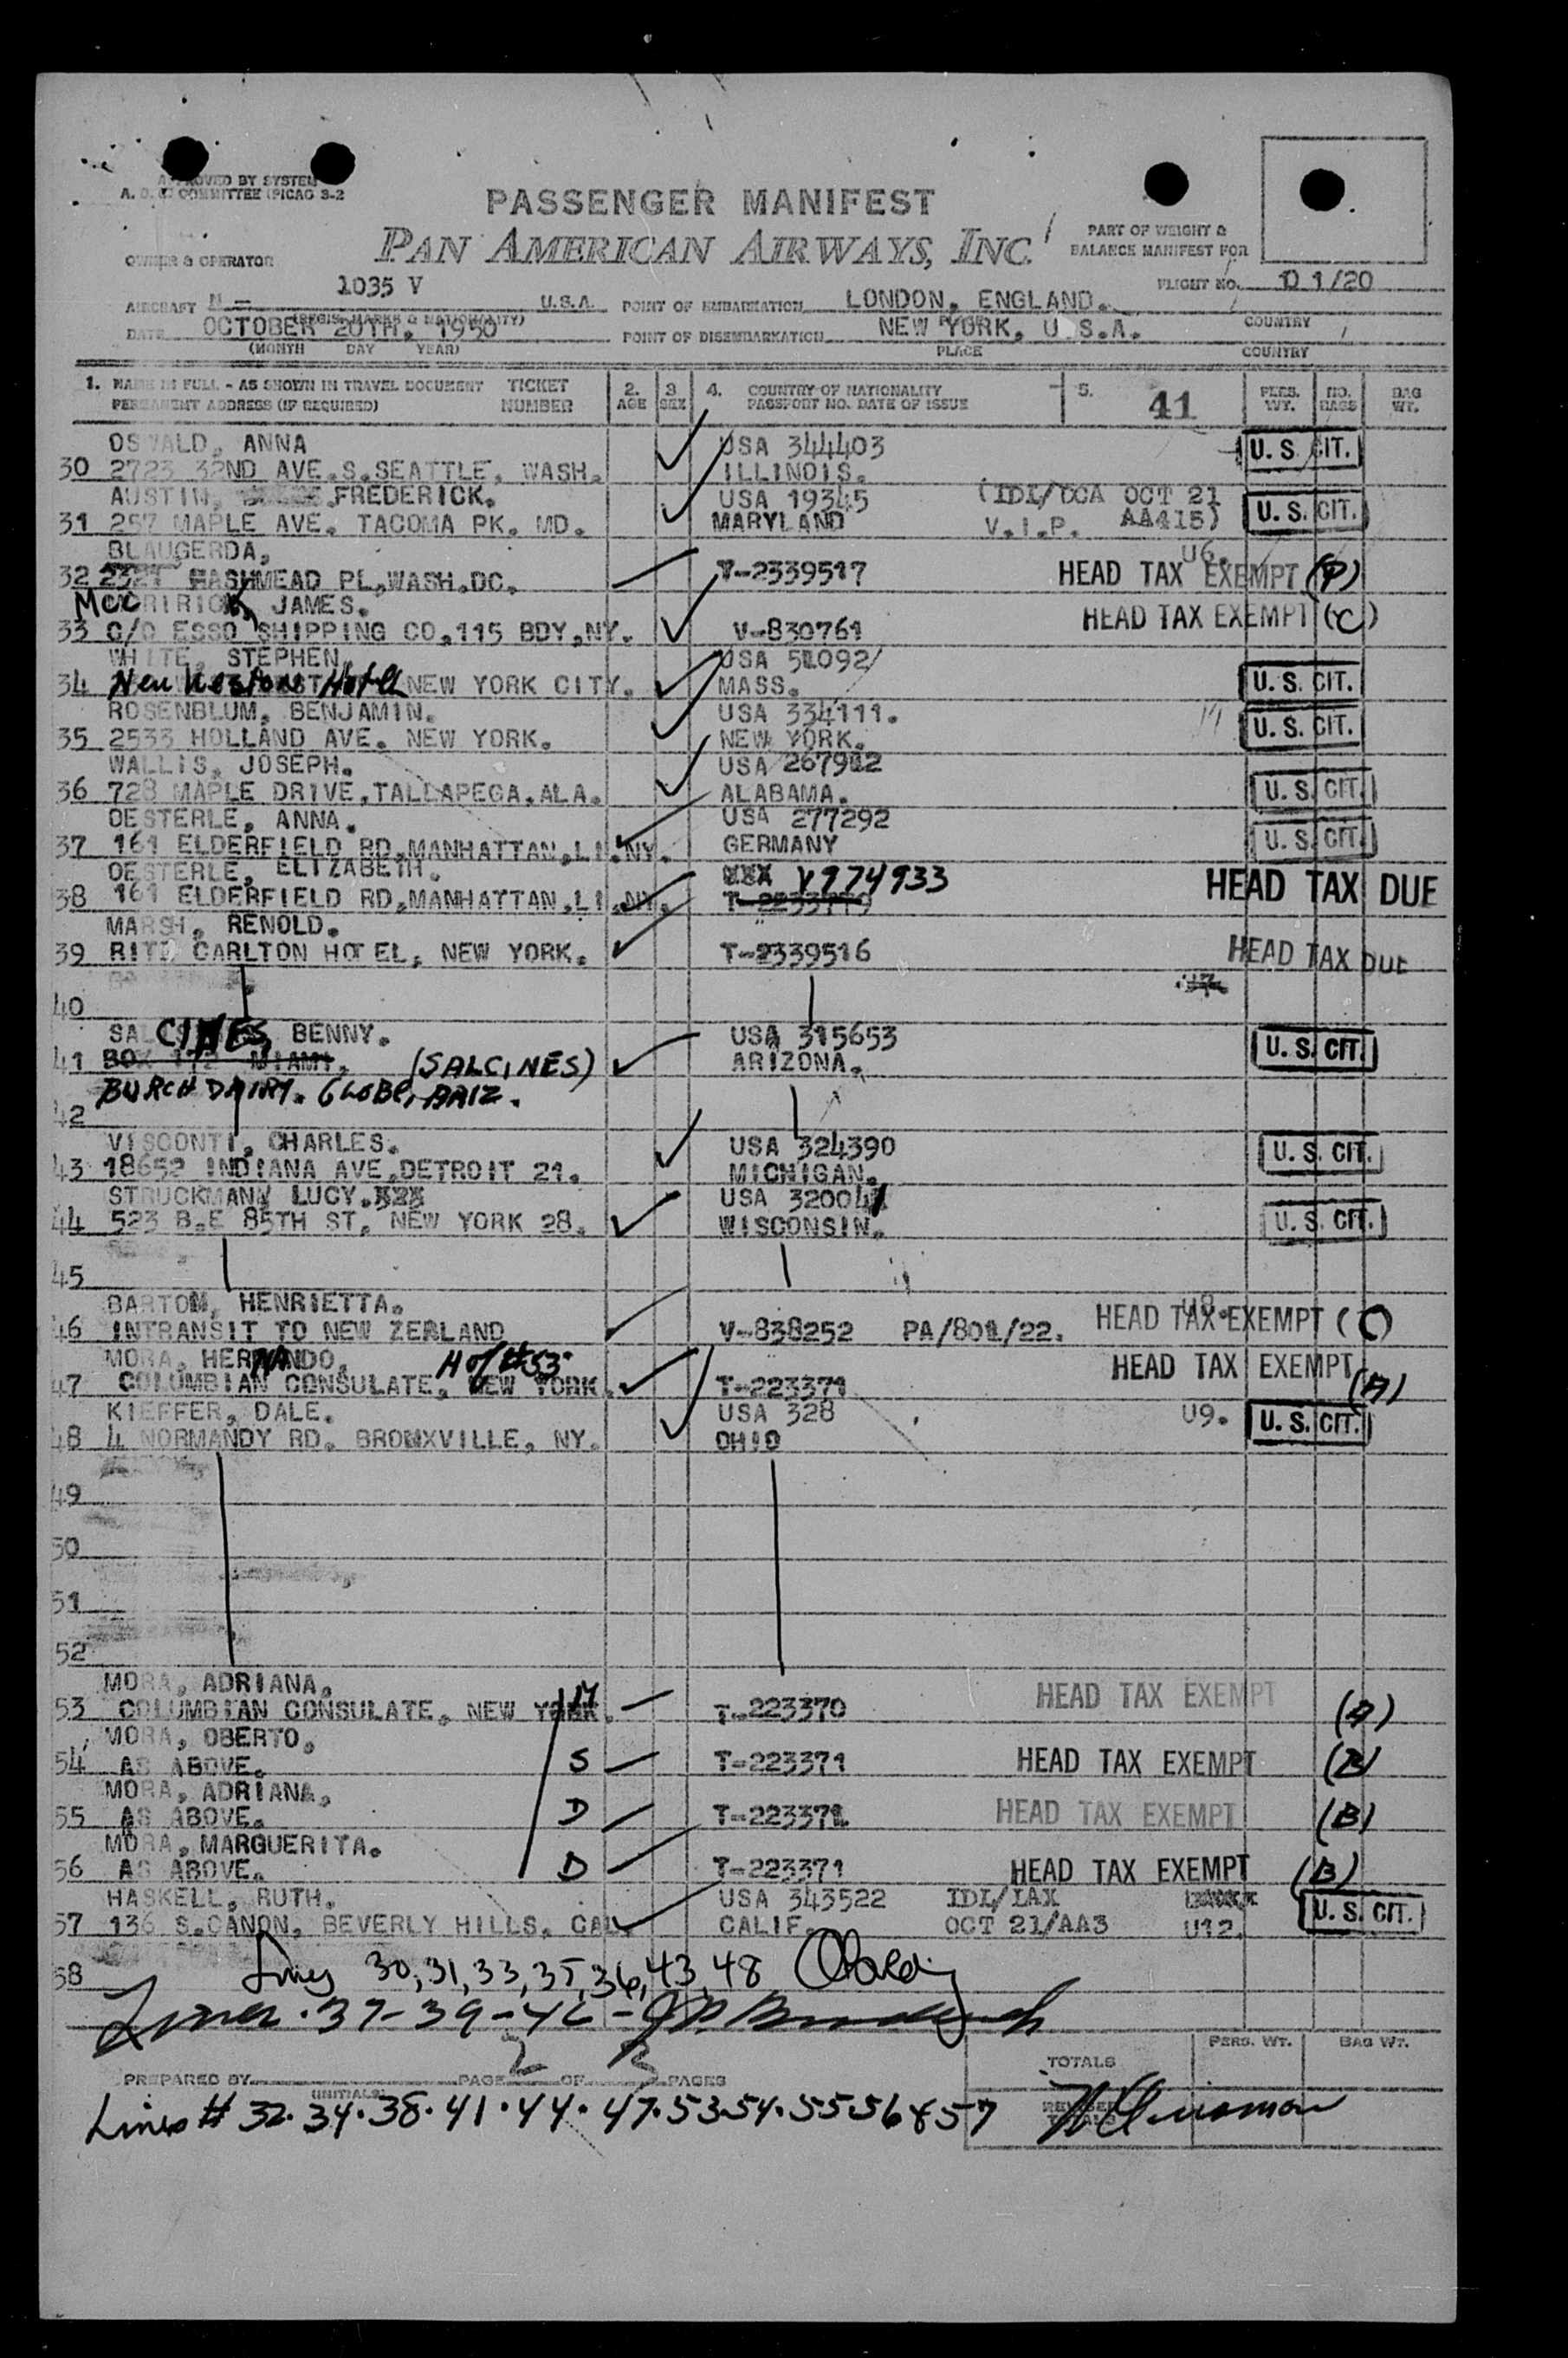 APPROVED BY SYSTEM
A. D. C. COMMITTEE (PICAO S-2
PASSENGER MANIFEST
PAN AMERICAN AIRWAYS, INC
PART OF WEIGHT &
BALANCE MANIFEST FOR
OWNER & OPERATOR
FLIGHT NO. D 1/20
AIRCRAFT N - 1035 V U.S.A. POINT OF EMBARKATION LONDON, ENGLAND.
(REGIS. MARKS & NATIONALITY) PLACE COUNTRY
DATE OCTOBER 20TH, 1950 POINT OF DISEMBARKATION NEW YORK, U.S.A.
(MONTH DAY YEAR) PLACE COUNTRY
1. NAME IN FULL - AS SHOWN IN TRAVEL DOCUMENT TICKET 2. 3 4. COUNTRY OF NATIONALITY 5. 41 PERS. NO. BAG
PERMANENT ADDRESS (IF REQUIRED) NUMBER AGE SEX PASSPORT NO. DATE OF ISSUE WT. BAGS WT.
OSWALD, ANNA USA 344403 U.S. CIT.
30 2723 32ND AVE.S.SEATTLE, WASH. ILLINOIS.
AUSTIN, FREDERICK. USA 19345 (IDL/DCA OCT 21
31 257 MAPLE AVE. TACOMA PK. MD. MARYLAND V.I.P. AA415) U.S. CIT.
BLAUGERDA, U6.
32 2321 HASHMEAD PL,WASH.DC. T-2339517 HEAD TAX EXEMPT (P)
JAMES. HEAD TAX EXEMPT (C)
33 C/O ESSO SHIPPING CO,115 BDY,NY. V-830761
WHITE, STEPHEN. USA 51092/
34 New Weston Hotel NEW YORK CITY. MASS. U.S. CIT.
ROSENBLUM, BENJAMIN. USA 334111.
35 2533 HOLLAND AVE. NEW YORK. NEW YORK. U.S. CIT.
WALLIS, JOSEPH. USA 267912
36 728 MAPLE DRIVE,TALLAPEGA.ALA. ALABAMA. U.S. CIT.
OESTERLE, ANNA. USA 277292
37 161 ELDERFIELD RD,MANHATTAN,LI.NY. GERMANY U.S. CIT.
OESTERLE, ELIZABETH. V974933
38 161 ELDERFIELD RD,MANHATTAN,LI.NY. HEAD TAX DUE
MARSH, RENOLD.
39 RITZ CARLTON HOTEL, NEW YORK. T-2339516 HEAD TAX DUE
40
SALCINES, BENNY. USA 315653
41 BOX 172 MIAMI. (SALCINES) ARIZONA. U.S. CIT.
BURCH DAIRY. GLOBE, ARIZ.
42
VISCONTI, CHARLES. USA 324390
43 18652 INDIANA AVE,DETROIT 21. MICHIGAN. U.S. CIT.
STRUCKMANN LUCY. USA 320041
44 523 B.E 85TH ST, NEW YORK 28. WISCONSIN. U.S. CIT.
45
BARTOM, HENRIETTA. U8.
46 INTRANSIT TO NEW ZEALAND V-838252 PA/801/22. HEAD TAX EXEMPT (C)
MORA, HERNANDO, H of #53 HEAD TAX EXEMPT
47 COLUMBIAN CONSULATE, NEW YORK. T-223371 (A)
KIEFFER, DALE. USA 328 U9.
48 4 NORMANDY RD. BRONXVILLE, NY. OHIO U.S. CIT.
49
50
51
52
MORA, ADRIANA,
53 COLUMBIAN CONSULATE, NEW YORK. T-223370 HEAD TAX EXEMPT (A)
MORA, OBERTO,
54 AS ABOVE. S T-223371 HEAD TAX EXEMPT (B)
MORA, ADRIANA,
55 AS ABOVE. D T-223371 HEAD TAX EXEMPT (B)
MORA, MARGUERITA.
56 AS ABOVE. D T-223371 HEAD TAX EXEMPT (B)
HASKELL, RUTH. USA 343522 IDL/LAX
57 136 S.CANON, BEVERLY HILLS, CAL CALIF. OCT 21/AA3 U12. U.S. CIT.
58 Lines 30, 31, 33, 35, 36, 43, 48
Lines 37-39-46-
PERS. WT. BAG WT.
TOTALS
PREPARED BY PAGE 2 OF 3 PAGES
(INITIALS)
Lines # 32. 34. 38. 41. 44. 47. 53 54. 55 56 & 57